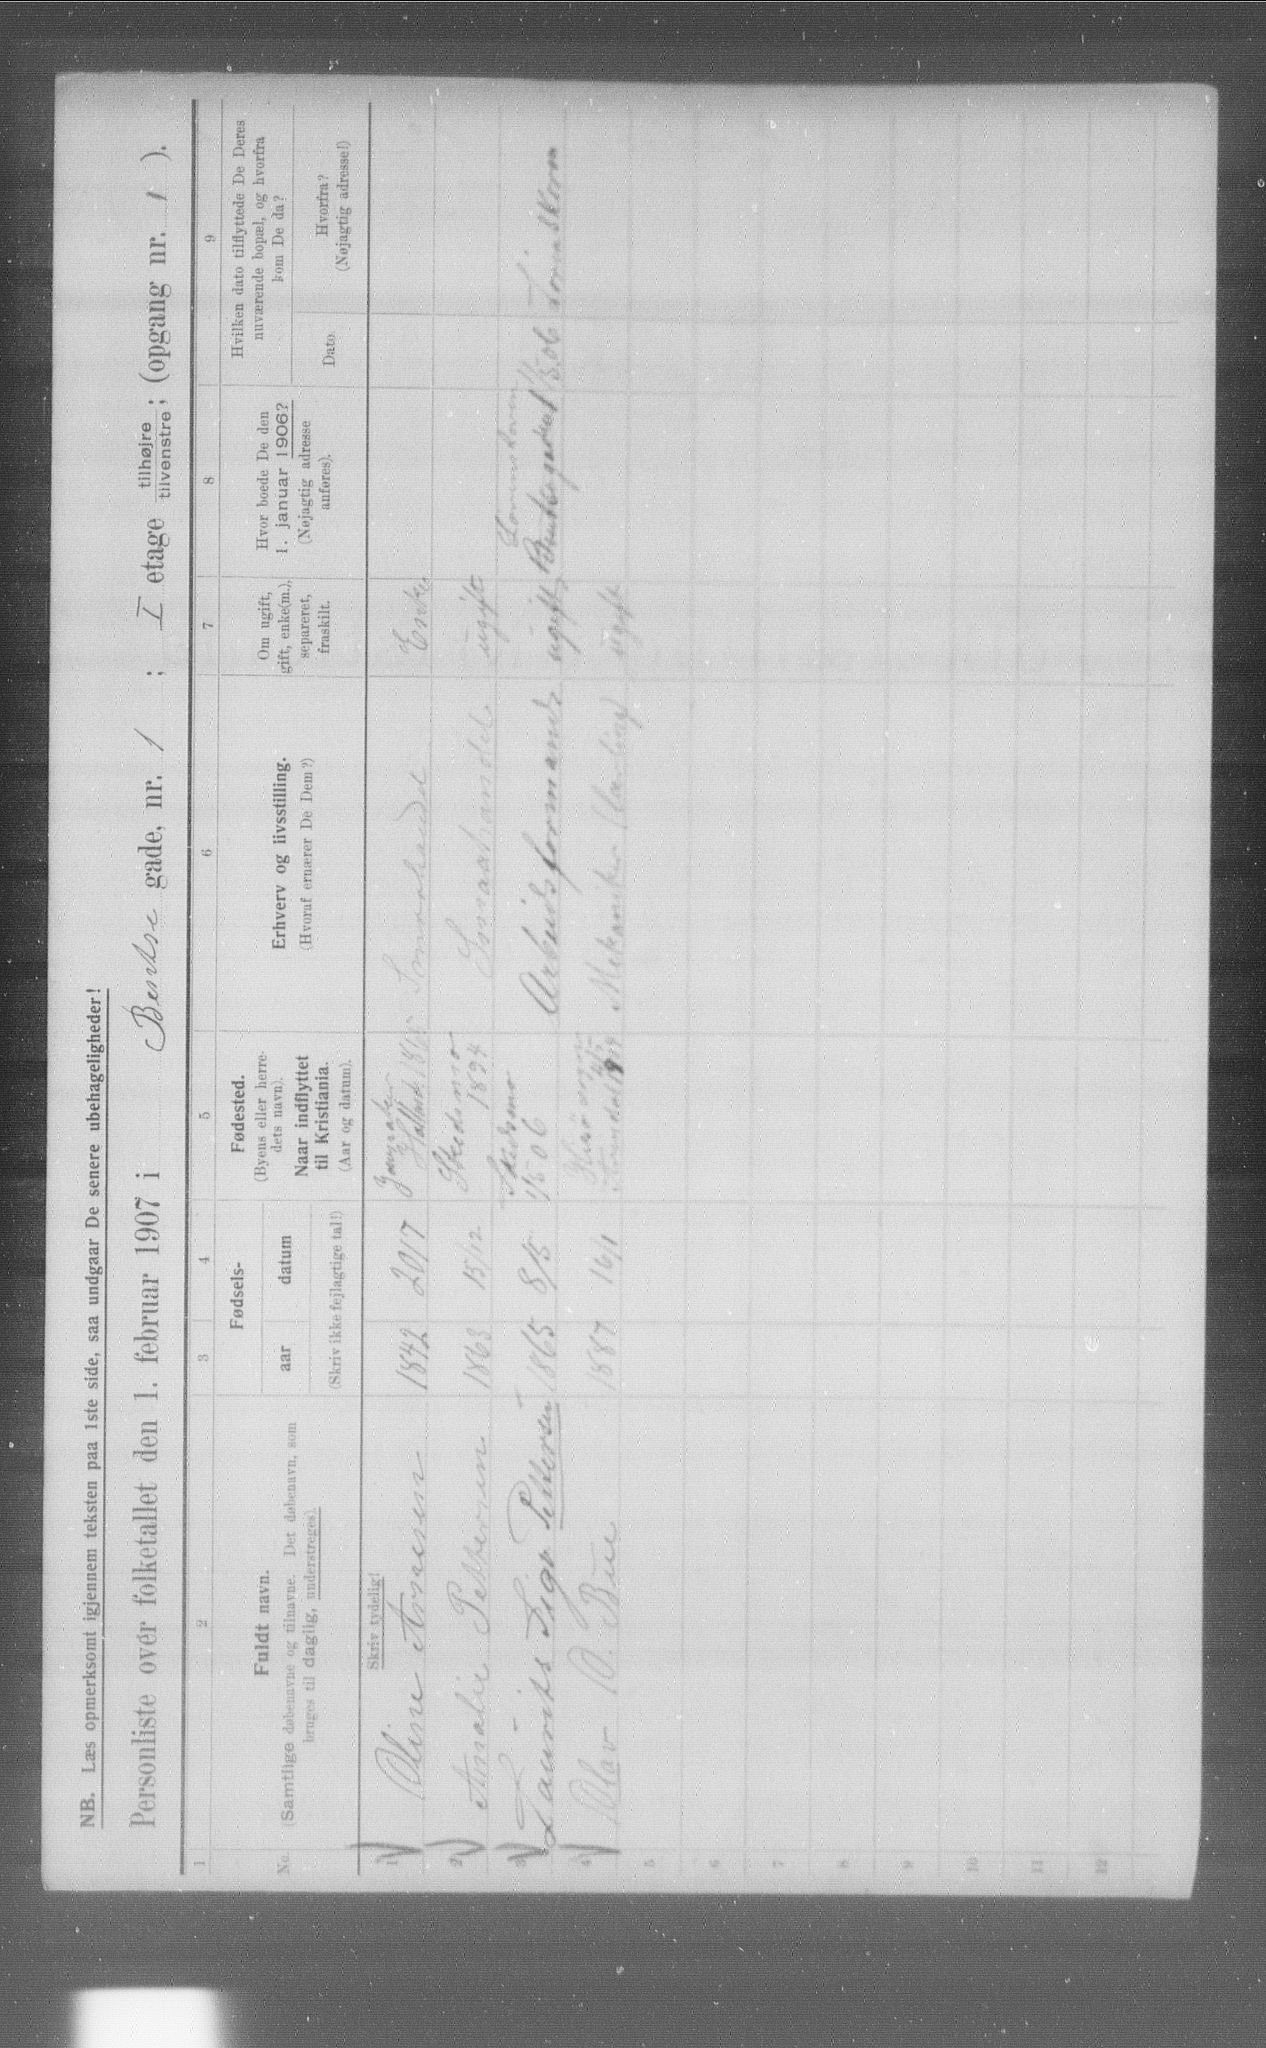 NB. Læs opmerksomt igjennem teksten paa 1ste side, saa undgaar De senere ubehageligheder!
Personliste over folketallet den 1. februar 1907 i Bentse gade, nr. 1 ; I etage tilhøjre tilvenstre; (opgang nr. 1 ).
1 2 3 4 5 6 7 8 9
No.
Fuldt navn.
(Samtlige døbenavne og tilnavne. Det døbenavn, som
bruges til daglig, understreges).
Fødsels-
aar datum
(Skriv ikke fejlagtige tal!)
Fødested.
(Byens eller herre-
dets navn).
Naar indflyttet
til Kristiania.
(Aar og datum).
Erhverv og livsstilling.
(Hvoraf ernærer De Dem?)
Om ugift,
gift, enke(m.),
separeret,
fraskilt.
Hvor boede De den
1. januar 1906?
(Nøjagtig adresse
anføres).
Hvilken dato tilflyttede De Deres
nuværende bopæl, og hvorfra
kom De da?
Dato.
Hvorfra?
(Nøjagtig adresse!)
Skriv tydelig!
1 Oline Arnesen 1842 20/7 Enke
2 Amalie Pettersen 1863 15/12 Skedsmo 1894 Smaahandel ugift
3 Laurits Pettersen 1865 8/5 Skedsmo 1/5 06 Arbeidsformand ugift 1/5 06
4 Olav O. Bue 1887 16/1 Mekaniker ugift
5
6
7
8
9
10
11
12